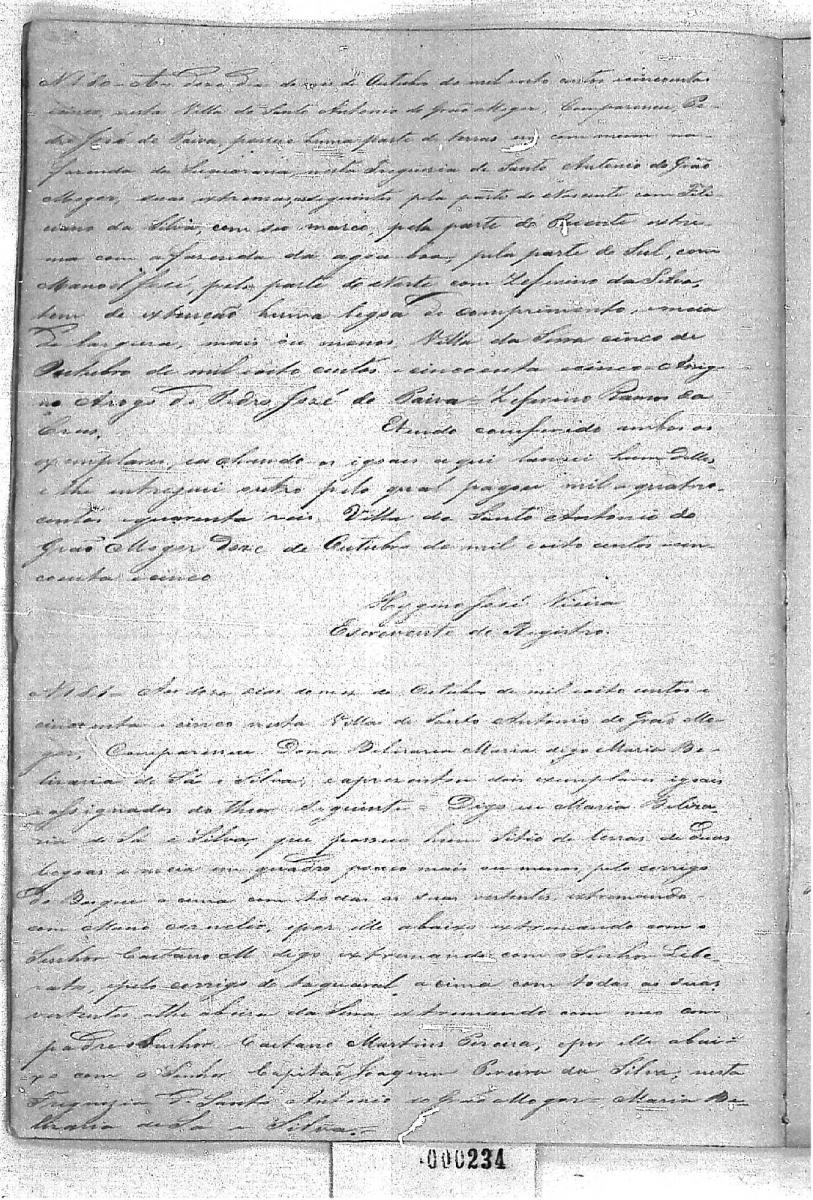 N 180 - Aos doze dias do mez de Outubro de mil oito centos e cincoenta
e cinco, nesta Villa de Santo Antonio do Grão Mogor, Compareceu Pe-
dro José de Paiva, possue huma parte de terras em com mum na
fazenda da Sussuarana, nesta Freguezia de Santo Antonio do Grão
Mogor, suas extremas seguintes pela parte do Nascente com Feli-
ciano da Silva, com seo marco, pela parte do Poente extre-
ma com a fazenda da agoa boa, pela parte do Sul, com
Manoel José, pela parte do Norte com Zeferino da Silva,
tem de extenção huma legoa de comprimento, e meia
de largura, mais ou menos, Villa da Serra cinco de
Outubro de mil oito centos e cincoenta e cinco - Assig-
no Arogo de Pedro José de Paiva - Zeferino Ramos da
Cruz. Etendo comferido ambos os
exemplares, ea chando os igoais a qui lancei hum delles
e lhe entreguei outro pelo qual pagou mil e quatro-
centos e quarenta reis. Villa de Santo Antonio do
Grão Mogor Doze de Outubro de mil e oito centos e cin
coenta e cinco
Hygino José Vieira
Escrevente do Registro.
N 181 - Aos doze dias do mez de Outubro de mil oito centos e
cincoenta e cinco nesta Villa de Santo Antonio do Grão Mo-
gor, Compareceu Dona Belizaria Maria digo Maria Be-
lizaria de Sá e Silva, e apresentou dois exemplares igoais
e assignados do theor seguinte - Digo eu Maria Beliza-
ria de Sá e Silva, que possuo hum Sitio de terras de duas
legoas e meia em quadro, pouco mais ou menos, pelo corrigo
do a cima com todas as suas vertentes, extremando
com, epor elle abaixo extremando com o
Senhor Caetano M digo extremando com o Senhor Libe-
rato, epelo corrigo do taquaral, a cima com todas as suas
vertentes, athe abeira da Serra extremando com meo com
padre o Senhor Caetano Martins Pereira, epor elle abai-
xo com o Senhor Capitão Joaquim Pereira da Silva, nesta
Freguezia de Santo Antonio do Grão Mogor - Maria Be-
lizaria de Sá e Silva. -
000234